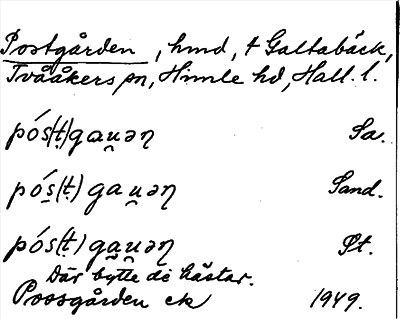 Postgården, hmd, t Galtabäck,
Tvååkers sn, Himle hd, Hall. l.
pós(t̤)gau̯əη Sa.
pós̱(t̤)gau̯əη Sand.
pós(t̤)ga̤u̯əη St.
Där bytte de hästar.
Possgården ek 1949.